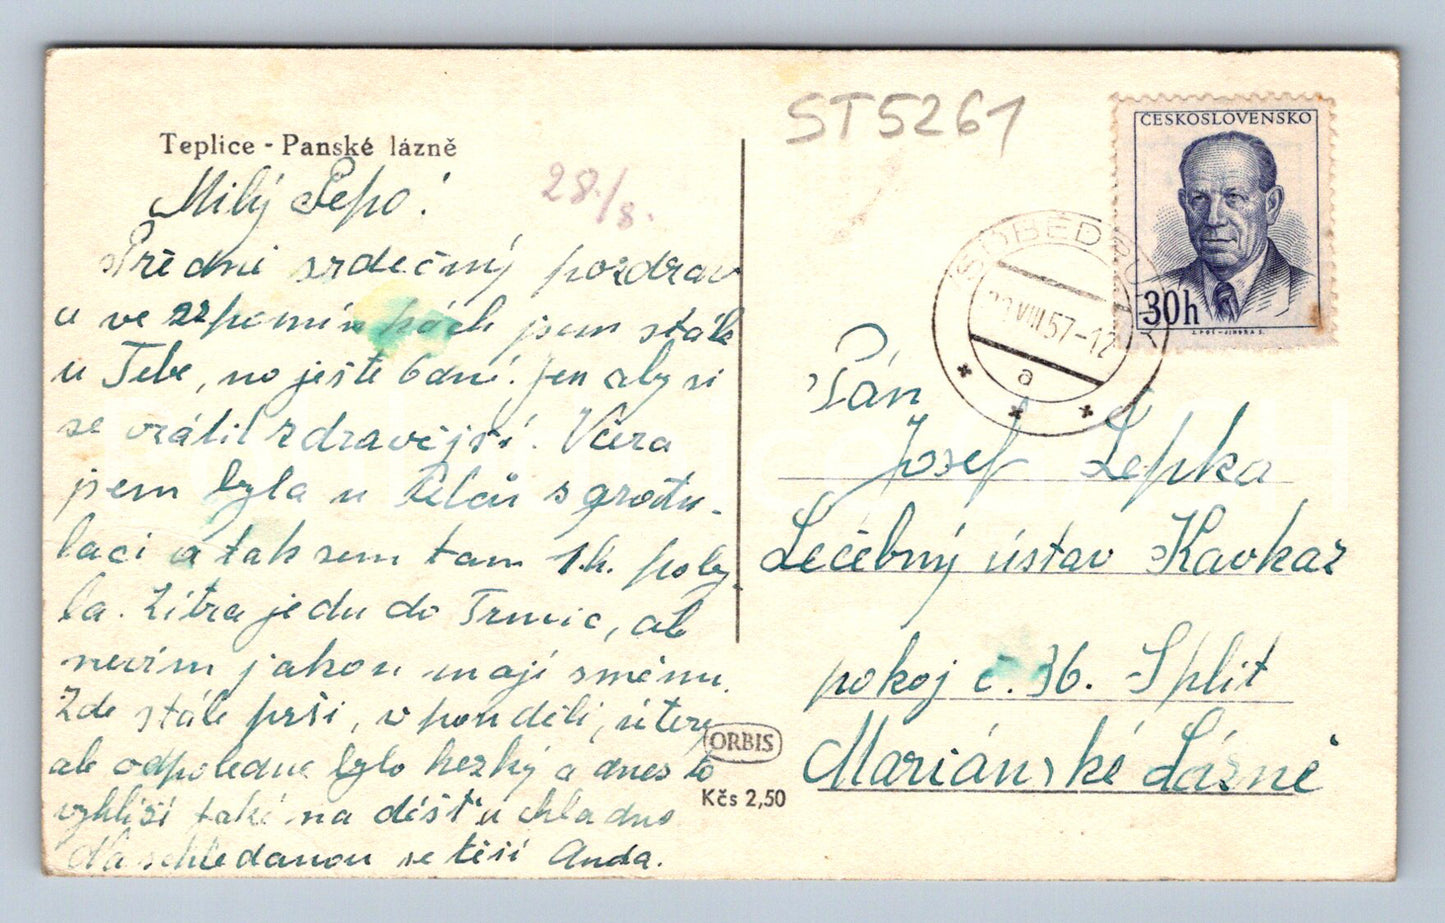 Teplice - Panské lázně
28./8.
Milý Pepo!
Předně srdečný pozdrav
a ve vzpomínkách jsem stále
u Tebe, no ještě 6 dní. Jen aby si
se vrátil zdravější. Včera
jsem byla u s gratu-
laci a tak sem tam 1 h. poby-
la. Zítra jedu do Trmic, ale
nevím jakou mají směnu.
Zde stále prší, v pondělí, úterý
ale odpoledne bylo hezký a dnes to
vyhlíží také na déšť a chladno
Na schledanou se těší Anda.
ST5261
ČESKOSLOVENSKO
30h
VIII 57-12
a
Pán
Josef Lepka
Léčebný ústav Kavkaz
pokoj č. 36. Split
Mariánské Lázně
ORBIS
Kčs 2,50